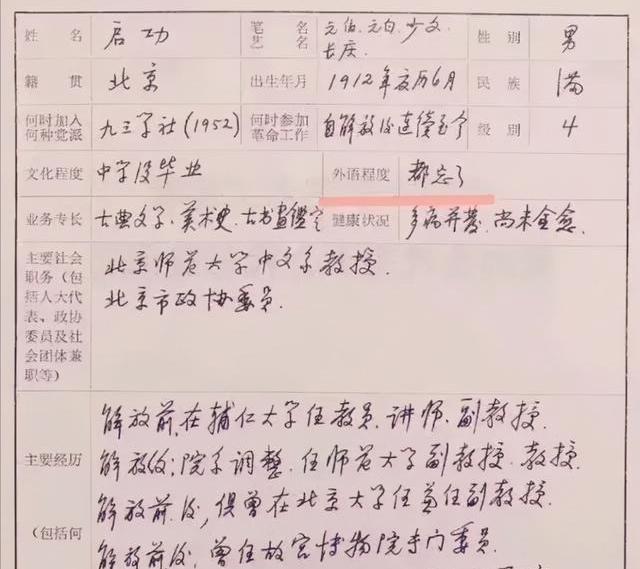 姓名 启功 笔名艺名 元伯、元白、少文、长庆. 性别 男
籍贯 北京 出生年月 1912年夏历6月 民族 满
何时加入何种党派 九三学社(1952) 何时参加革命工作 自解放后连续至今 级别 4
文化程度 中学没毕业 外语程度 都忘了
业务专长 古典文学、美术史、古书画鑑定 健康状况 多病并发、尚未全愈.
主要社会职务(包括人大代表、政协委员及社会团体兼职等)
北京师范大学中文系教授.
北京市政协委员.
主要经历
(包括何
解放前,在辅仁大学任教员、讲师、副教授.
解放后;院系调整.任师范大学副教授、教授.
解放前后,俱曾在北京大学任兼任副教授.
解放前后,曾任故宫博物院专门委员.